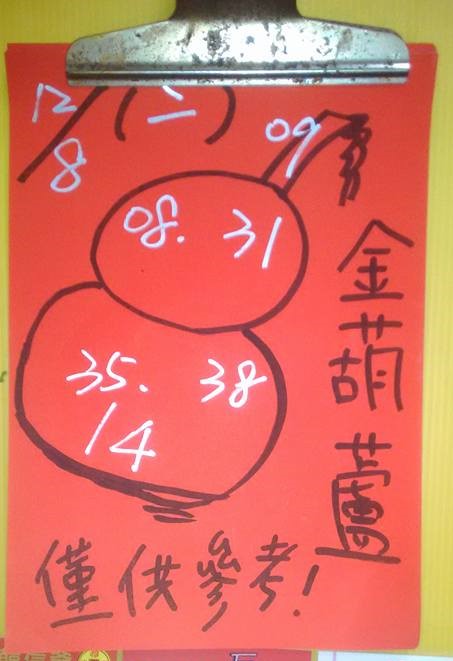 12/8 (二)
09
08. 31
35. 38
14
金葫蘆
僅供參考!